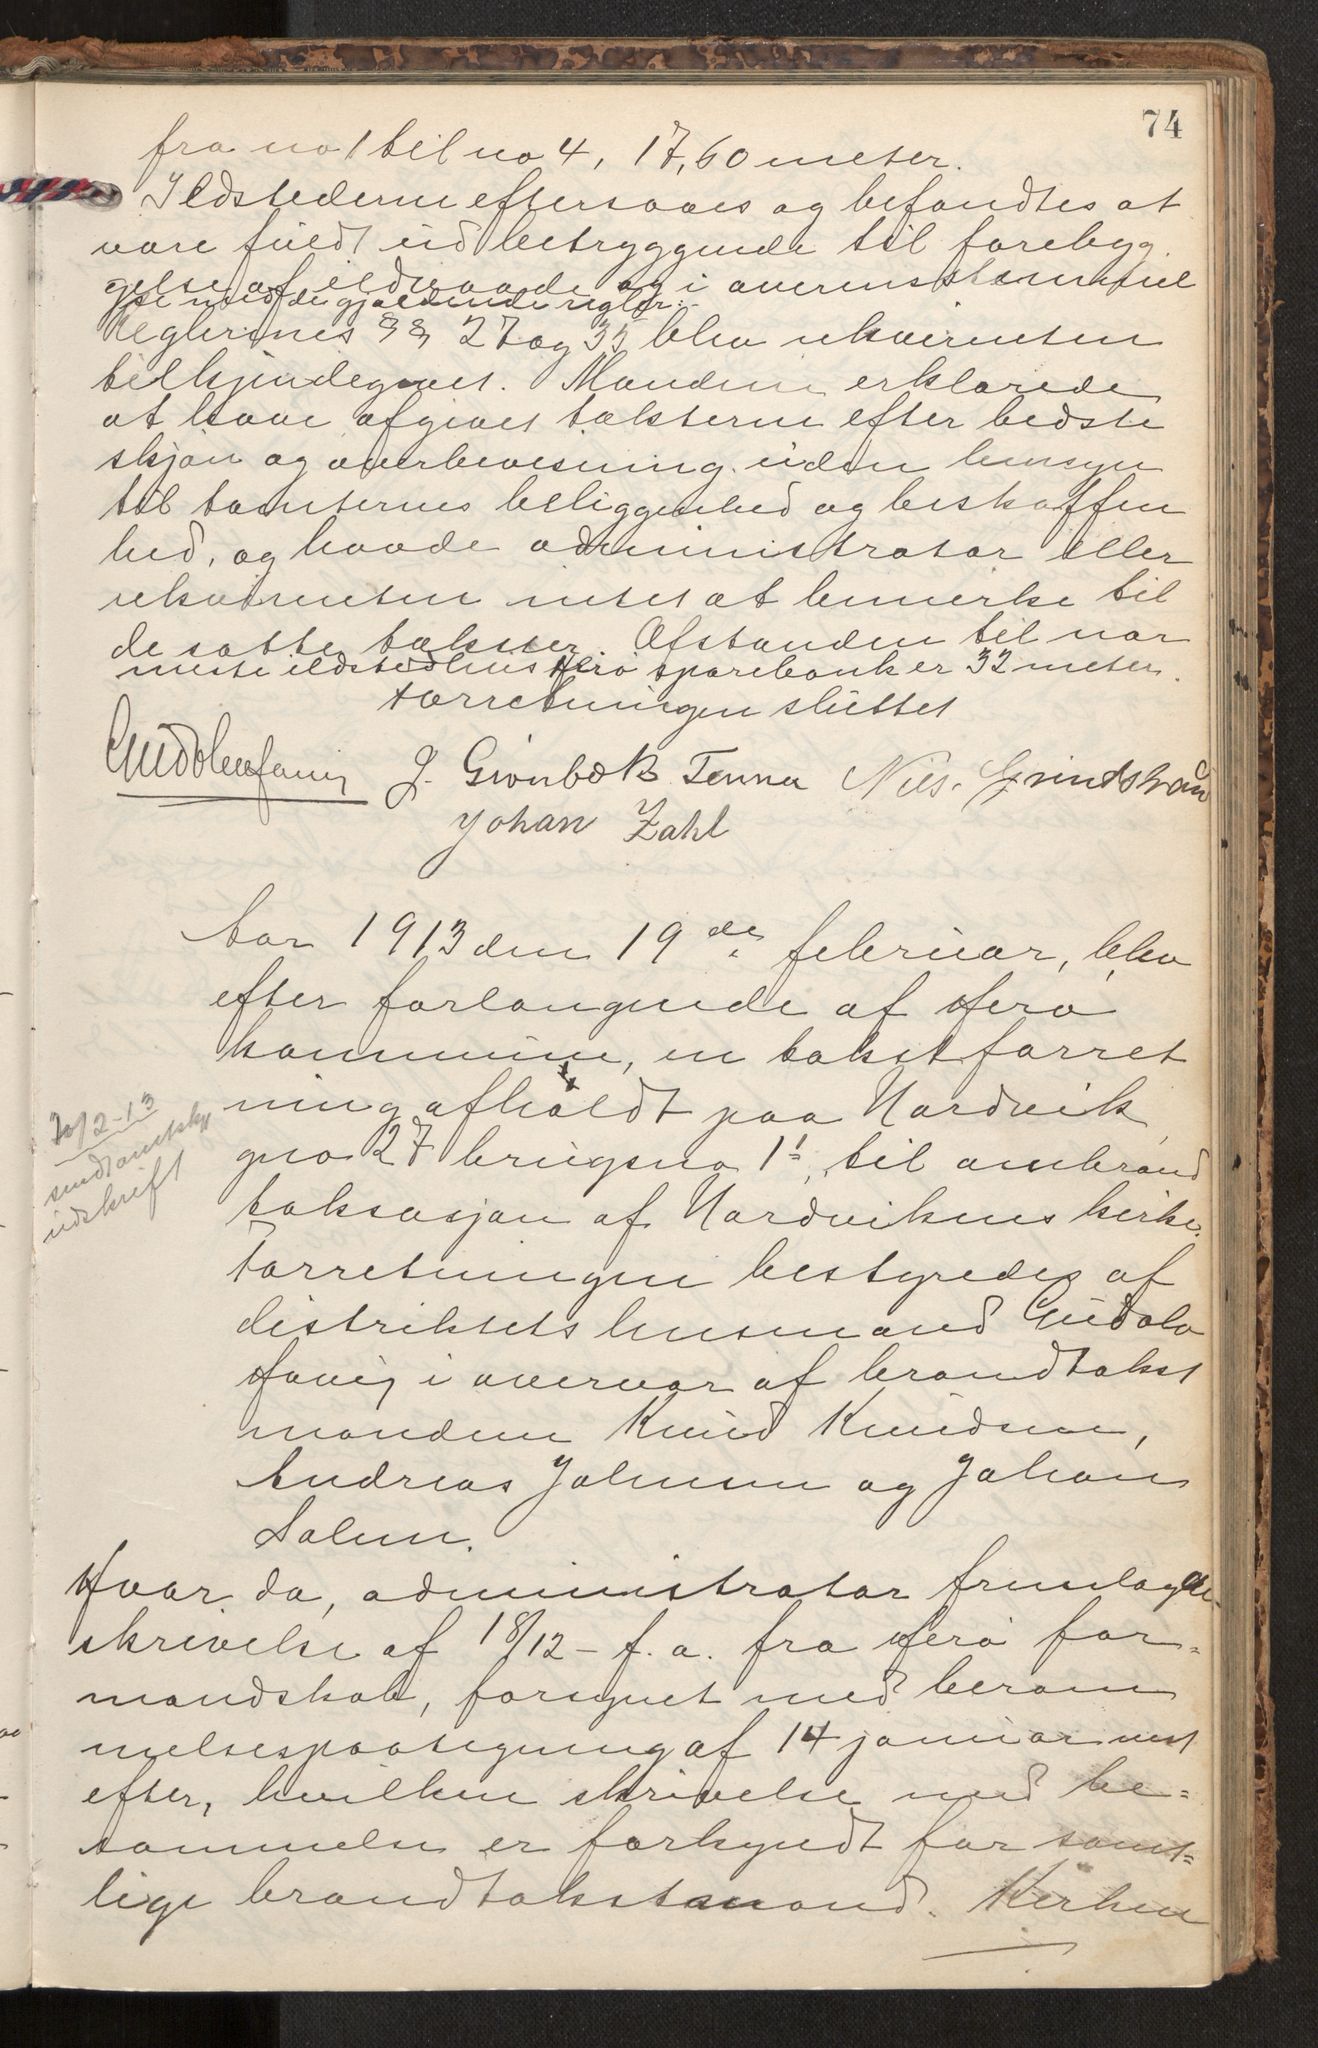 74
fra no 1 til no 4, 17,60 meter.
Ildstederne eftersaaes og befandtes at
være fuldt ud betryggende til forebyg
gelse af ildsvaade og i overensstemmel
se med de gjældende regler.
Reglernes §§ 27 og 35 blev rekvirenten
tilkjendegivet. Mændene erklærede
at have afgivet taksterne efter bedste
skjøn og overbevisning uden hensyn
til tomternes beliggenhed og beskaffen
hed, og havde administrator eller
rekvirenten intet at bemerke til
de satte takster. Afstanden til nær
meste ildstedhus Herø sparebank er 32 meter.
Forretningen sluttet
J. Grønbæk Tenna Nils. Grindstrand
Johan Zahl
Aar 1913 den 19de februar, blev
efter forlangende af Herø
kommune, en takstforret
ning afholdt paa Nordvik
gno 27 brugsno 1, til ombrand
taksasjon af Nordvikens kirke.
20/2-13
sendt
udskrift
Forretningen bestyredes af
distriktets lensmand Gudolv
Havig i overvær af brandtakst
mændene Knud Knudsen,
Andreas Johnsen og Johan
Solen.
Hvor da, administrator fremlagde
skrivelse af 18/12 - f. a. fra Herø for=
mandskab, forsynet med beram
melsespaategning af 14 januar næst
efter, hvilken skrivelse med be=
rammelse er forkyndt for samt=
lige brandtakstmænd. Kirken